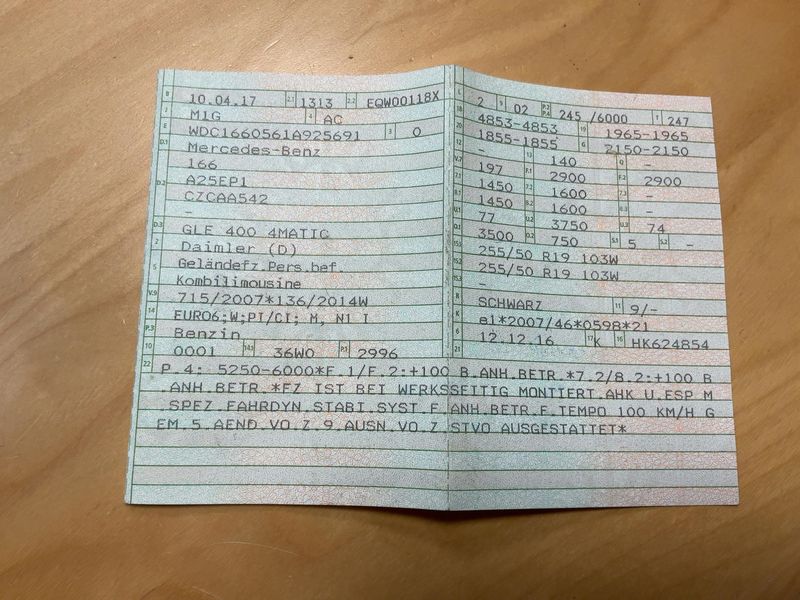 B 10.04.17 2.1 1313 2.2 EQW00118X
J M1G 4 AC
E WDC1660561A925691 3 0
D.1 Mercedes-Benz
166
D.2 A25EP1
CZCAA542
-
D.3 GLE 400 4MATIC
2 Daimler (D)
5 Geländefz.Pers.bef.
Kombilimousine
V.9 715/2007*136/2014W
14 EURO6;W;PI/CI; M, N1 I
P.3 Benzin
10 0001 14.1 36W0 P.1 2996
L 2 9 02 P.2 P.4 245 /6000 T 247
18 4853-4853 19 1965-1965
20 1855-1855 G 2150-2150
12 - 13 140 Q -
V.7 197 F.1 2900 F.2 2900
7.1 1450 7.2 1600 7.3 -
8.1 1450 8.2 1600 8.3 -
U.1 77 U.2 3750 U.3 74
O.1 3500 O.2 750 S.1 5 S.2 -
15.1 255/50 R19 103W
15.2 255/50 R19 103W
15.3 -
R SCHWARZ 11 9/-
K e1*2007/46*0598*21
6 12.12.16 17 K 16 HK624854
21
22 P.4: 5250-6000*F.1/F.2:+100 B.ANH.BETR.*7.2/8.2:+100 B
.ANH.BETR.*FZ IST BEI WERKSSEITIG MONTIERT.AHK U.ESP M
.SPEZ.FAHRDYN.STABI.SYST.F.ANH.BETR.F.TEMPO 100 KM/H G
EM.5.AEND.VO.Z.9.AUSN.VO.Z.STVO AUSGESTATTET*